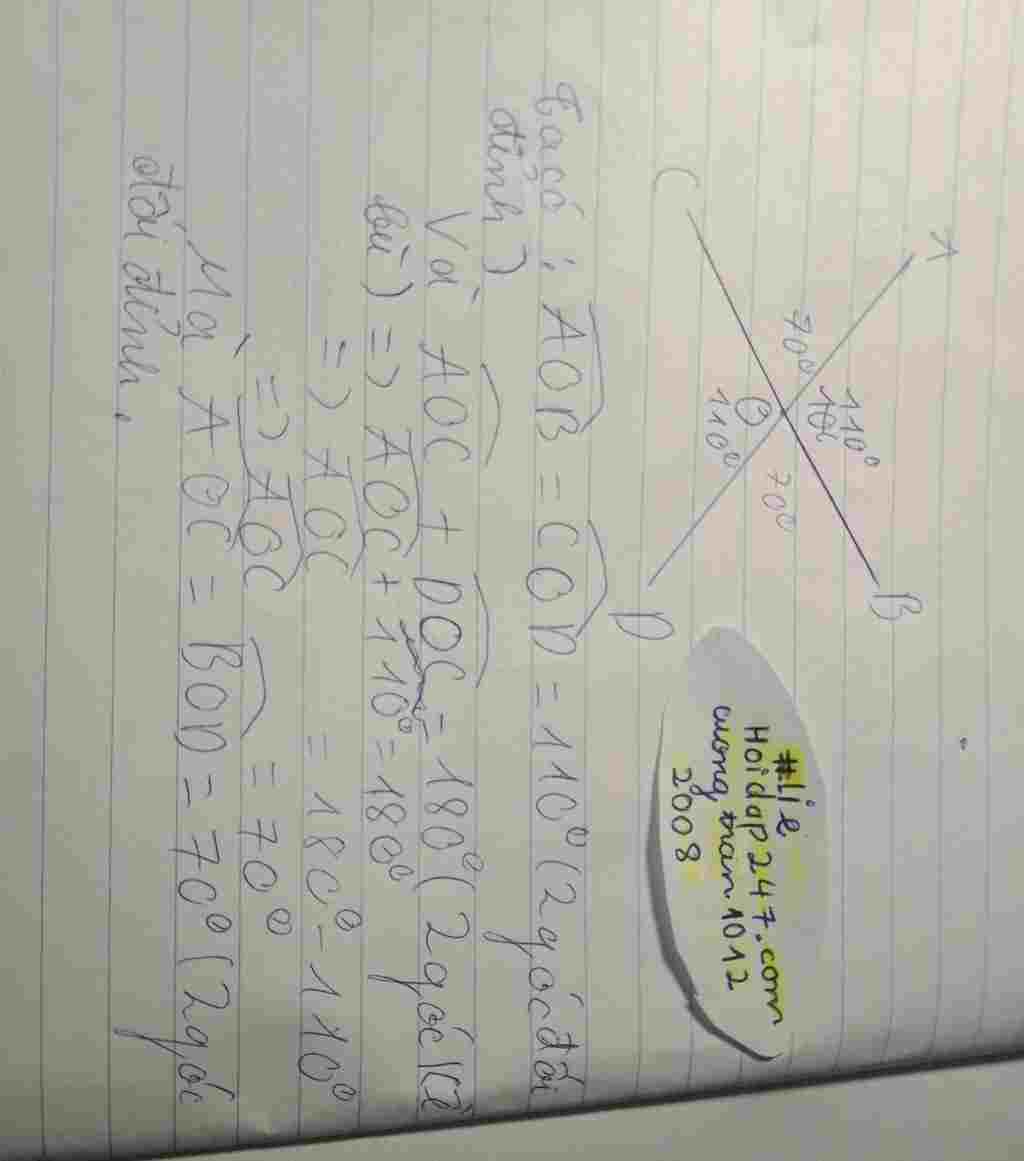 A
B
C
D
O
70°
110°
70°
110°
#Lie
Hoidap247.com
cuongtran1012
2008
Ta có : AOB = COD = 110° (2 góc đối
đỉnh)
Và AOC + DOC = 180° (2 góc kề
bù) => AOC + 110° = 180°
=> AOC = 180° - 110°
=> AOC = 70°
Mà AOC = BOD = 70° (2 góc
đối đỉnh.